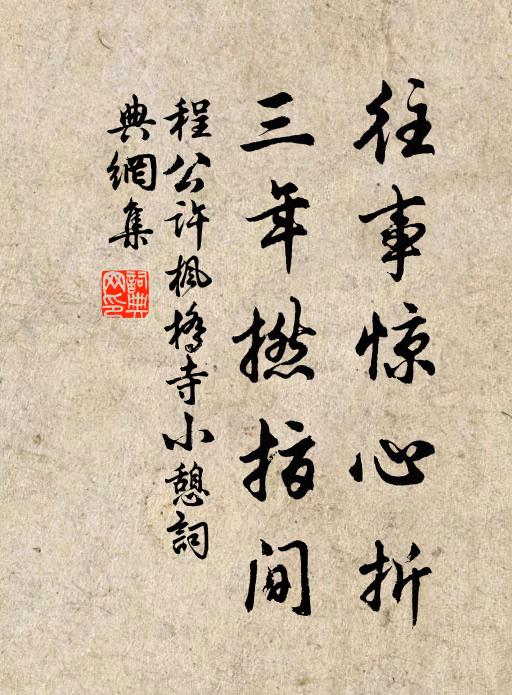 往事惊心折
三年撚指间
程公许枫桥寺小憩词
典網集
詞典網印